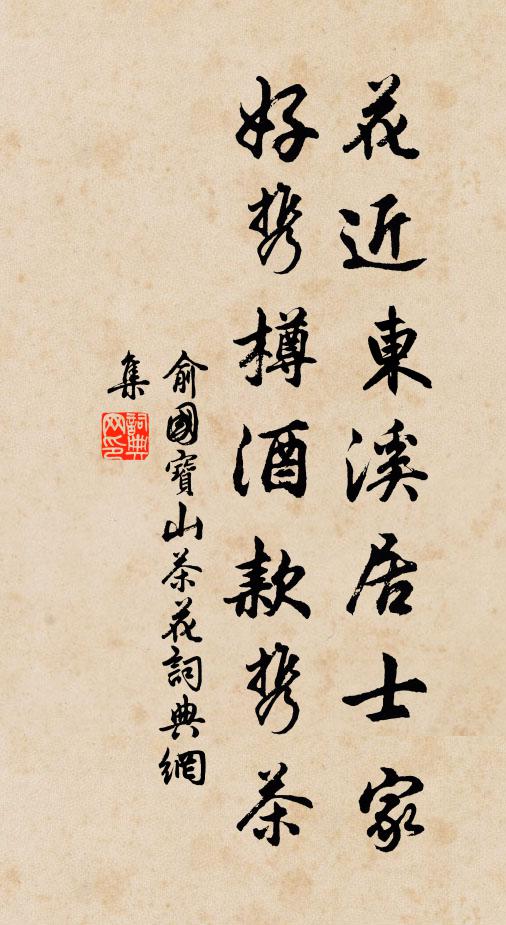 花近東溪居士家
好携樽酒款携茶
俞國寶山茶花詞典網
集
詞典網印